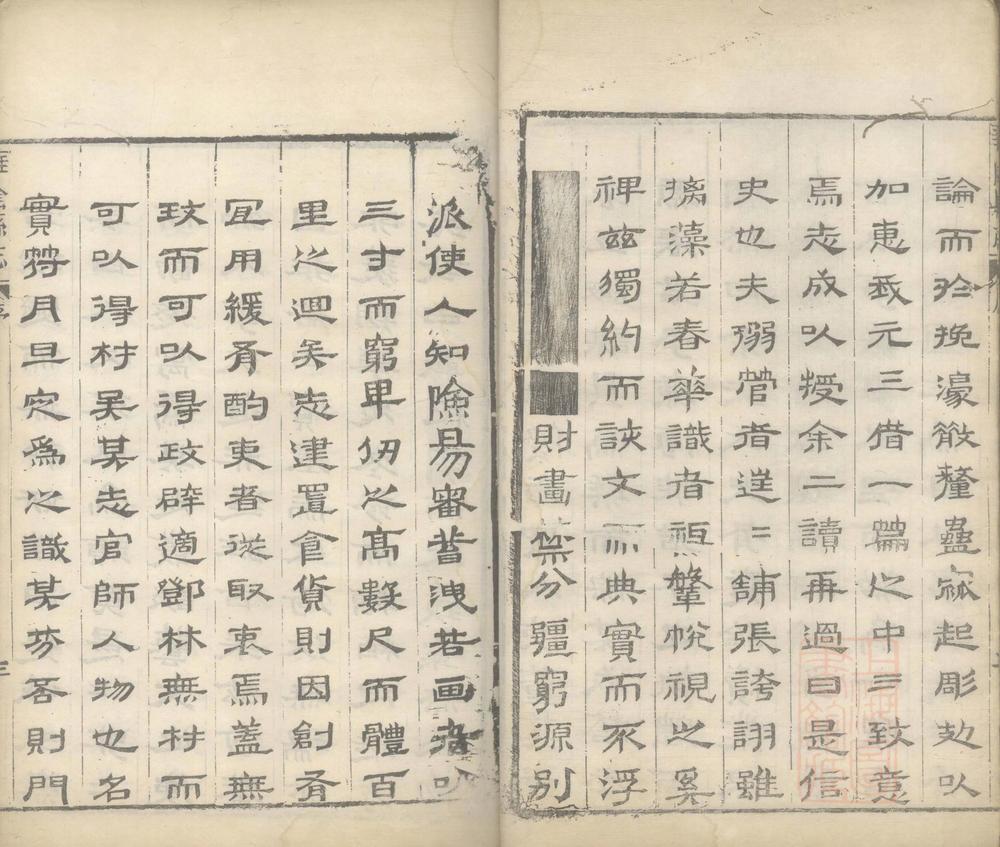 論而於挽濠斆釐蠱寂起彫攰以
加惠我元三借一篇之中三致意
焉志成以授余二讀再過曰是信
史也夫弱管者逞二鋪張誇詡雖
摛藻若春華識者祖鞶帨視之奚
裨茲獨約而該文而典實而不浮
財畫禁分疆窮源別
派使人知險易審蓄洩若画者以
三寸而窮卑仞之高數尺而體百
里之迴矣志建置食貨則因創胥
冝用緩胥酌吏者從取衷焉蓋無
政而可以得政辟適鄧林無材而
可以得材矣某志官師人物也名
實符月旦定為之識某芬否則門